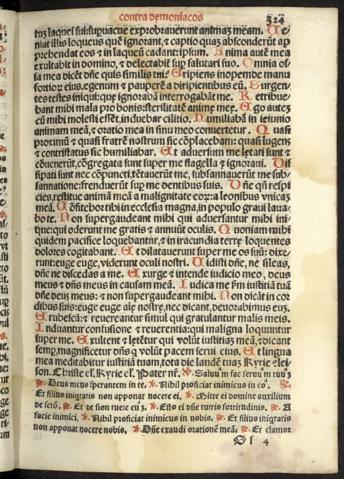 contra demoniacos
324
tuȝ laquei sui: supuacue exprobauerunt animaȝ meam. Ve-
niat illis loqueus quē ignorant, ⁊ captio quaȝ absconderūt ap-
prehendat eos ⁊ in laqueū cadant: ipsum. Anima autē mea
exultabit in domino, ⁊ delectabit̄ sup salutari suo. Omnia os-
sa mea dicēt dn̄e quis similis tui: Eripiens inopem de manu
fortioȝ eius, egenum ⁊ pauperē a diripientibus eū. Surgen-
tes testes iniqui: que ignorabā interrogabāt me. Retribue-
bant mihi mala pro bonis: sterilitatē anime mee. Ego autez
cū mihi molesti essēt, induebar cilitio. Humiliabā in ieiunio
animam meā, ⁊ oratio mea in sinu meo conuertetur. Quasi
proximū ⁊ quasi fratrē nostrum sic cōplacebam: quasi lugens
⁊ contristatus sic humiliabar. Et aduersum me letati sunt ⁊
cōuenerūt, cōgregata sunt super me flagella ⁊ ignoraui. Dis
sipati sunt nec cōpuncti, tētauerūt me, subsannauerūt me sub-
sannatione: frenduerūt sup me dentibus suis. Dn̄e qn̄ respi
cies, restitue animā mea a malignitate eoȝ: a leonibus vnicaȝ
meā. Cōfitebor tibi in ecclesia magna, in populo graui lauda
bo te. Non supergaudeant mihi qui aduersantur mihi ini-
que: qui oderunt me gratis ⁊ annuūt oculis. Quoniam mihi
quidem pacifice loquebantur, ⁊ in iracundia terre loquentes
dolores cogitabant. Et dilatauerunt super me os suū: dixe-
runt: euge euge, viderunt oculi nostri. Uidisti dn̄e, ne sileas,
dn̄e ne discedas a me. Exurge ⁊ intende iudicio meo, deus
meus ⁊ dn̄s meus in causam meā. Iudica me s̄m iustitiā tuā
dn̄e deus meus: ⁊ non supergaudeant mihi. Non dicāt in cor
dibus suis: euge euge aīe nostre, nec dicant, deuorabimus euȝ.
Erubescā: ⁊ reuereantur simul qui gratulantur malis meis.
Induantur confusione ⁊ reuerentia: qui maligna loquuntur
super me. Exultent ⁊ letētur qui volūt iustitiaȝ meā, ⁊ dicant
semp, magnificetur dn̄s q̄ volūt pacem serui eius. Et lingua
mea meditabitur iustitiā tuam, tota die laudē tuaȝ. Kyrie elei-
son. Christe el. Kyrie el. Pater nr̄. ℣. Saluū m̄ fac seruū m̄ tuuȝ
℟. Deus meus sperantem in te. ℣. Nihil proficiat inimicus in eo. ℟.
Et filius iniquitatis non apponat nocere ei. ℣. Mitte ei domine auxilium
de sctō. ℟. Et de sion tuere euȝ. ℣. Esto ei dn̄e turris fortitudinis. ℟. A
facie inimici. ℣. Nihil proficiat inimicus in nobis. ℟. Et filius iniquitatis
non apponat nocere nobis. ℣. Dn̄e exaudi orationē meā. ℟. Et clamor
Sſ 4